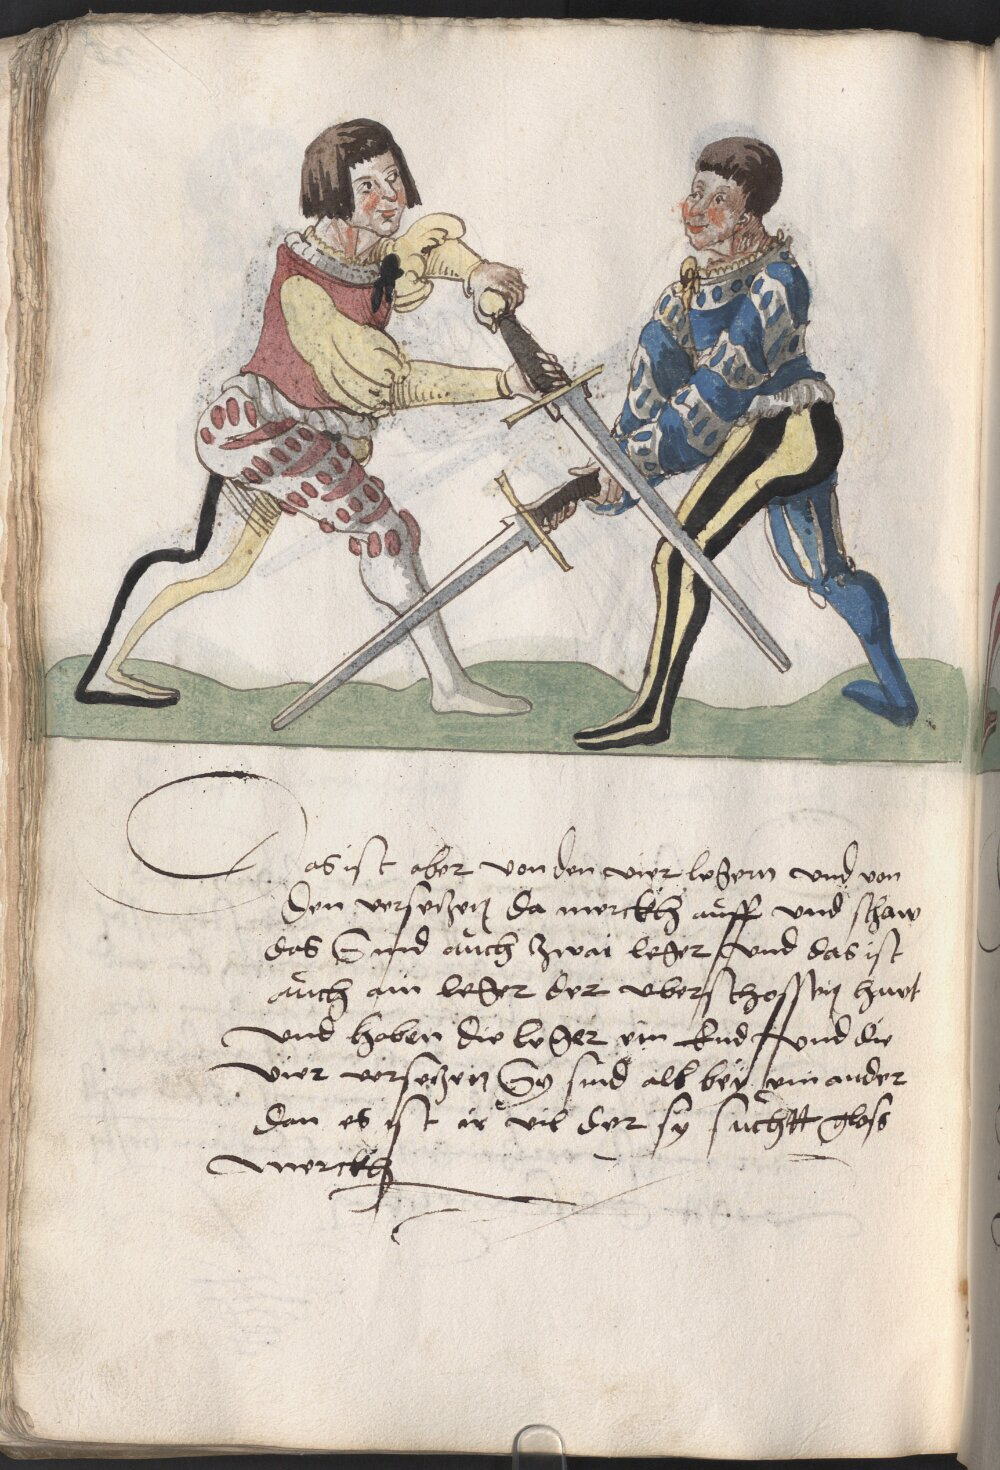 Das ist aber von den vier legern und von
den versetzen da merckh auff und schaw
das Sind auch zwai leger und das ist
auch ain leger der uberschossen hawt
und haben die leger ein End und die
vier versetzen Sy sind all bey ein ander
dan es ist ir vil der sy sucht gloss
merckh